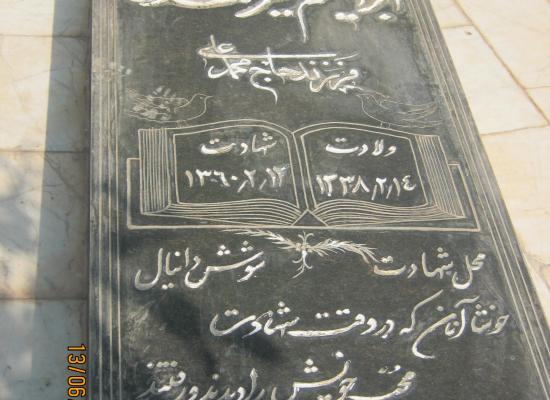 ابراهیم
فرزند حاج محمد علی
ولادت
۱۳۳۸/۲/۱٤
شهادت
۱۳۶۰/۲/۱۲
محل شهادت شوش دانیال
خوشا آنان که در وقت شهادت
خویش را دیدند و رفتند
13/06